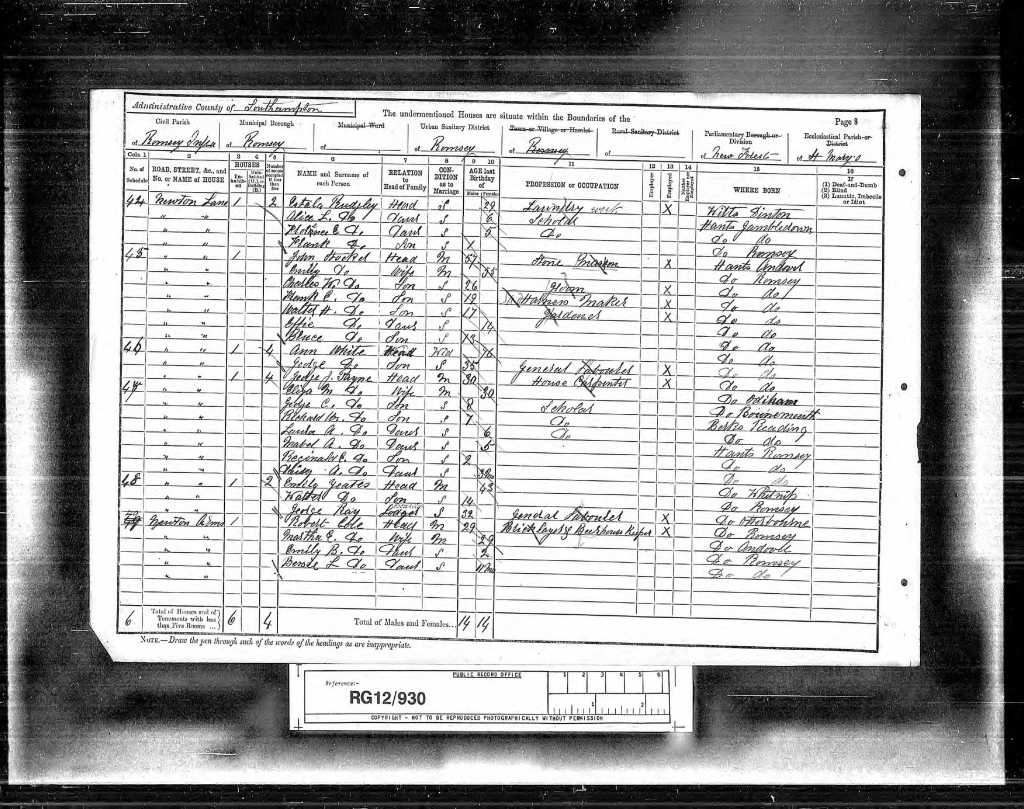 Administrative County of Southampton
The undermentioned Houses are situate within the Boundaries of the
Page 8
Civil Parish
of Romsey Infra
Municipal Borough
of Romsey
Municipal Ward
of
Urban Sanitary District
of Romsey
Town or Village or Hamlet
of Romsey
Rural Sanitary District
of
Parliamentary Borough or Division
of New Forest
Ecclesiastical Parish or District
of St Mary's
Cols. 1 2 3 4 5 6 7 8 9 10 11 12 13 14 15 16
No. of Schedule
ROAD, STREET, &c., and No. or NAME of HOUSE
HOUSES
NAME and Surname of each Person
RELATION to Head of Family
CONDITION as to Marriage
AGE last Birthday of
Males Females
PROFESSION or OCCUPATION
Employer
Employed
WHERE BORN
(1) Deaf-and-Dumb
(2) Blind
(3) Lunatic, Imbecile or Idiot
42 Newton Lane 1 2 Head S 29 Laundry work X Wilts Dinton
" " Alice L. Do Daur S 6 Scholar Hants
" " Florance E. Do Daur S 5 Do Do do
" " Frank Do Son S 1 Do Romsey
45 " " 1 John Head M 57 Stone Mason X Hants Andover
" " Emily Do Wife M 55 Do Romsey
" " Charles W. Do Son S 26 Groom X Do do
" " Frank E. Do Son S 19 Harness Maker X Do do
" " Walter H. Do Son S 17 Gardener X Do do
" " Effie Do Daur S 14 Do do
" " Bruce Do Son S 13 Do do
46 " " 1 4 Ann White Head Wid 76 Do do
" " George Do Son S 35 General Labourer X Do do
47 " " 1 4 George J. Payne Head M 30 House Carpenter X Do do
" " Eliza M. Do Wife M 30 Do Odiham
" " George C. Do Son S 8 Scholar Do Bournemouth
" " Richard Do Son S 7 Do Berks Reading
" " Laura A. Do Daur S 6 Do Do do
" " Mabel A. Do Daur S 5 Hants Romsey
" " Reginald E. Do Son S 2 Do do
" " Daisy A. Do Daur S Do do
48 " " 1 2 Emily Yeates Head M 43 Do
" " Walter Do Son S 14 Do Romsey
" " George Ray Lodger S 32 General Labourer X Do
49 Newton Arms 1 Robert Cole Head M 29 Bricklayer & Beerhouse Keeper X Do Romsey
" " Martha E. Do Wife M 29 Do Andover
" " Emily B. Do Daur S 2 Do Romsey
" " Bessie L. Do Daur S 11 mo Do do
6 Total of Houses and of Tenements with less than Five Rooms 6 4 Total of Males and Females... 14 14
NOTE.—Draw the pen through such of the words of the headings as are inappropriate.
PUBLIC RECORD OFFICE
Reference:-
RG12/930
1 2 3 4 5 6
1 2
COPYRIGHT - NOT TO BE REPRODUCED PHOTOGRAPHICALLY WITHOUT PERMISSION